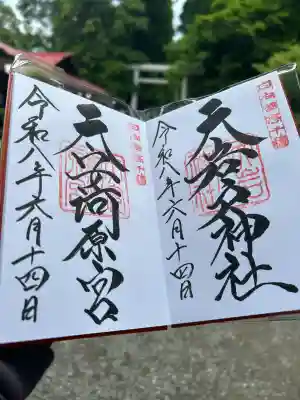 天岩戸神社
令和八年六月十四日
天安河原宮
令和八年六月十四日